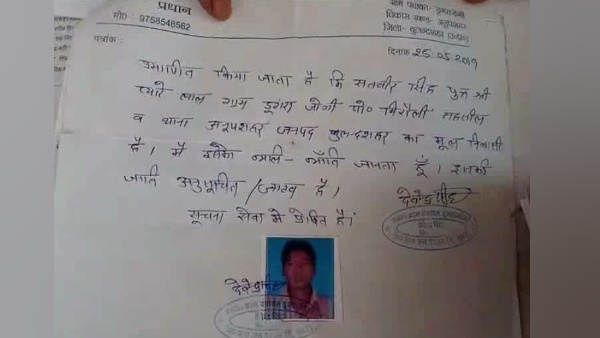 प्रधान
मो0 : 9758548562
ग्राम पंचायत-
विकास खण्ड- अनूपशहर
जिला- बुलन्दशहर (उ0प्र0)
पत्रांक :
दिनांक 25.05.2019
प्रमाणित किया जाता है कि सतवीर सिंह पुत्र श्री
प्यारे लाल ग्राम डूगरा जोगी पो० सिरौली तहसील
व थाना अनूपशहर जनपद बुलन्दशहर का मूल निवासी
है। मैं इनको भली-भाँति जानता हूँ। इनकी
जाति अनुसूचित/जाटव है।
देवेन्द्र सिंह
सूचना सेवा मे प्रेषित है।
देवेन्द्र सिंह